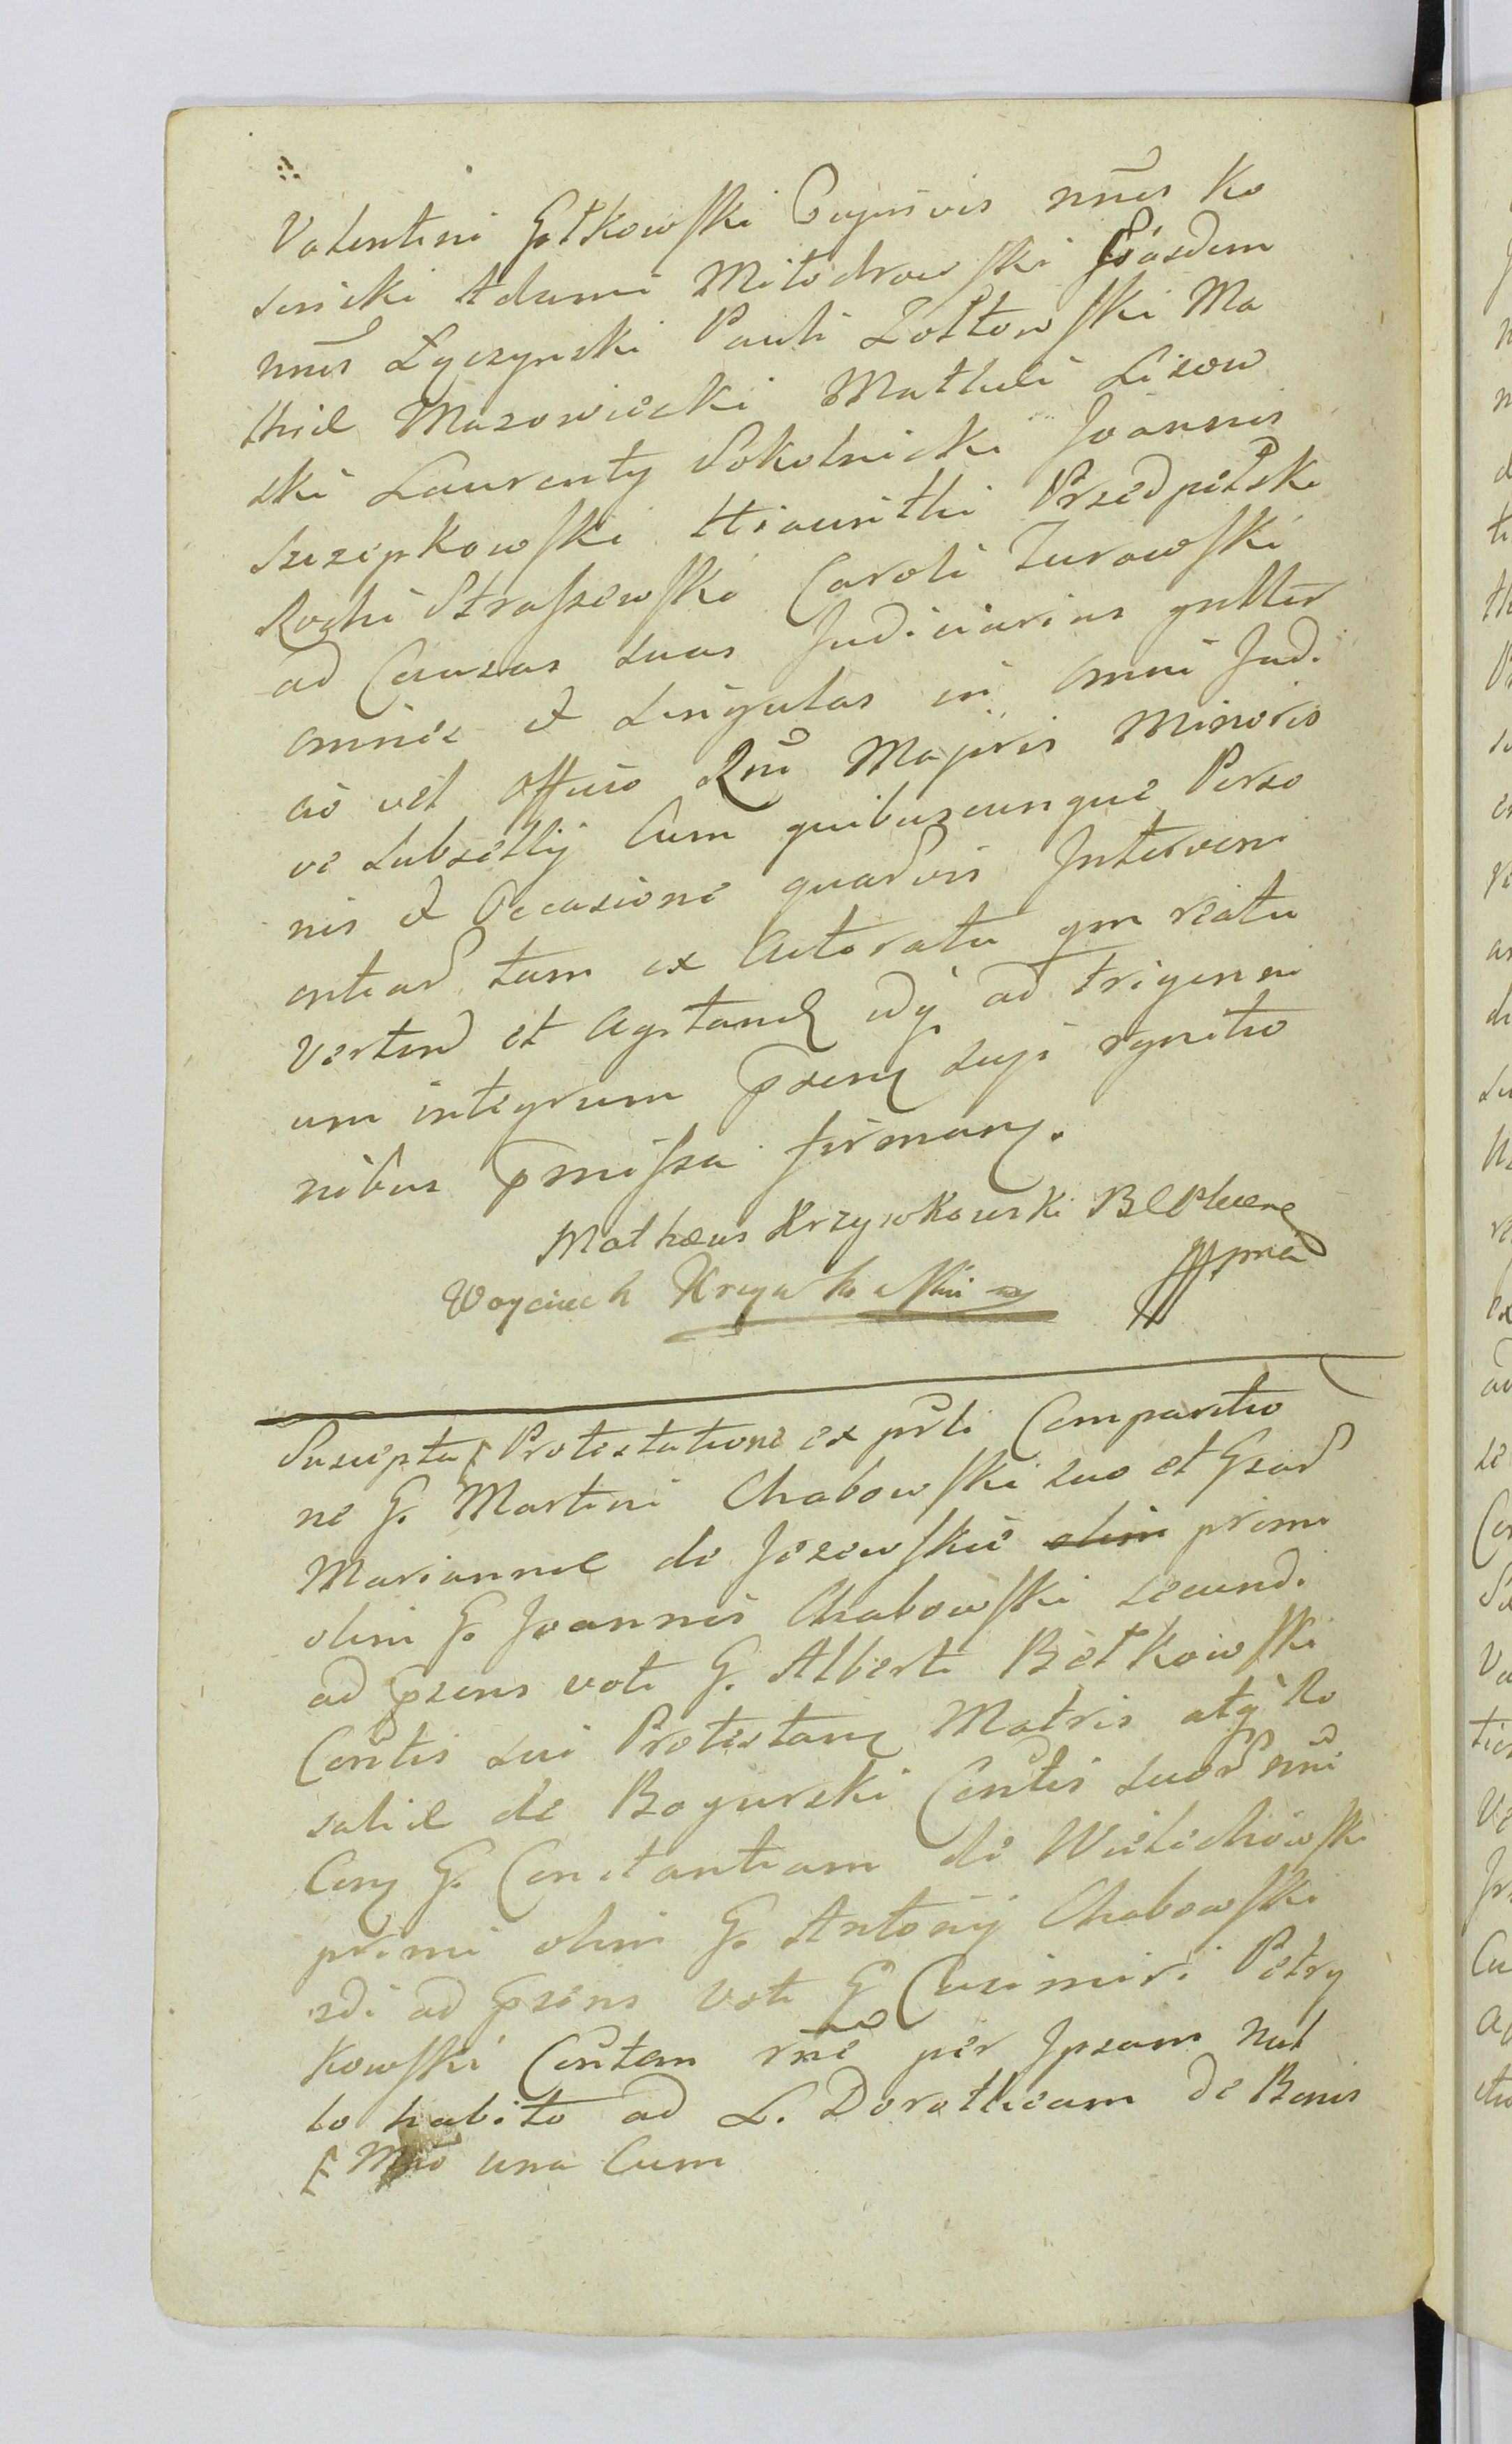 Valentini Gołkowski Cujusvis nnĕs Ko
sinski Adami Miłodrowski Joãsdem
nnĕs Łyczynski Pauli Zołtowski Ma
thiæ Mazowiecki Mathei Lisow
ski Laurenty Sokolnicki Joannis
Szczepkowski Hiacinthi Przedpełski
Rochi Straszewski Caroli Zurowski
ad Causas suas Judiciarias gnltter
omnes et singulas in omni Judi
cio vel officio Rni Majoris Minoris
ve subsellij Cum quibuscunque Perso
nis et Occasione quarvis Interveni
entiar tam ex Actoratu qm reatu
verten et agitand idq ad trigenni
um integrum psens suisi rgnitio
nibus pmissa firman.
Matheus Krzywkowski B C Pluens
mpria
Woyciech Krzywkoskii mp
Suscepta Protestatione ex prti Comparitio
ne G. Martini Chabowski suo et Gsar
Mariannæ de Jezewskie olim primi
olim G. Joannis Chabowski secundi
ad psens voti G. Alberti Betkowski
Contis sui Protestan Matris atq Ro
saliæ de Bogurski Contis suor nnĕ
Con G. Constantiam de Wielichowski
primi olim G. Antonij Chabowski
2di ad psens voti G Casimiri Petry
kowski Contem rnĕ per Ipsam nul
lo habito ad L. Dorotheam de Bonis
una Cum